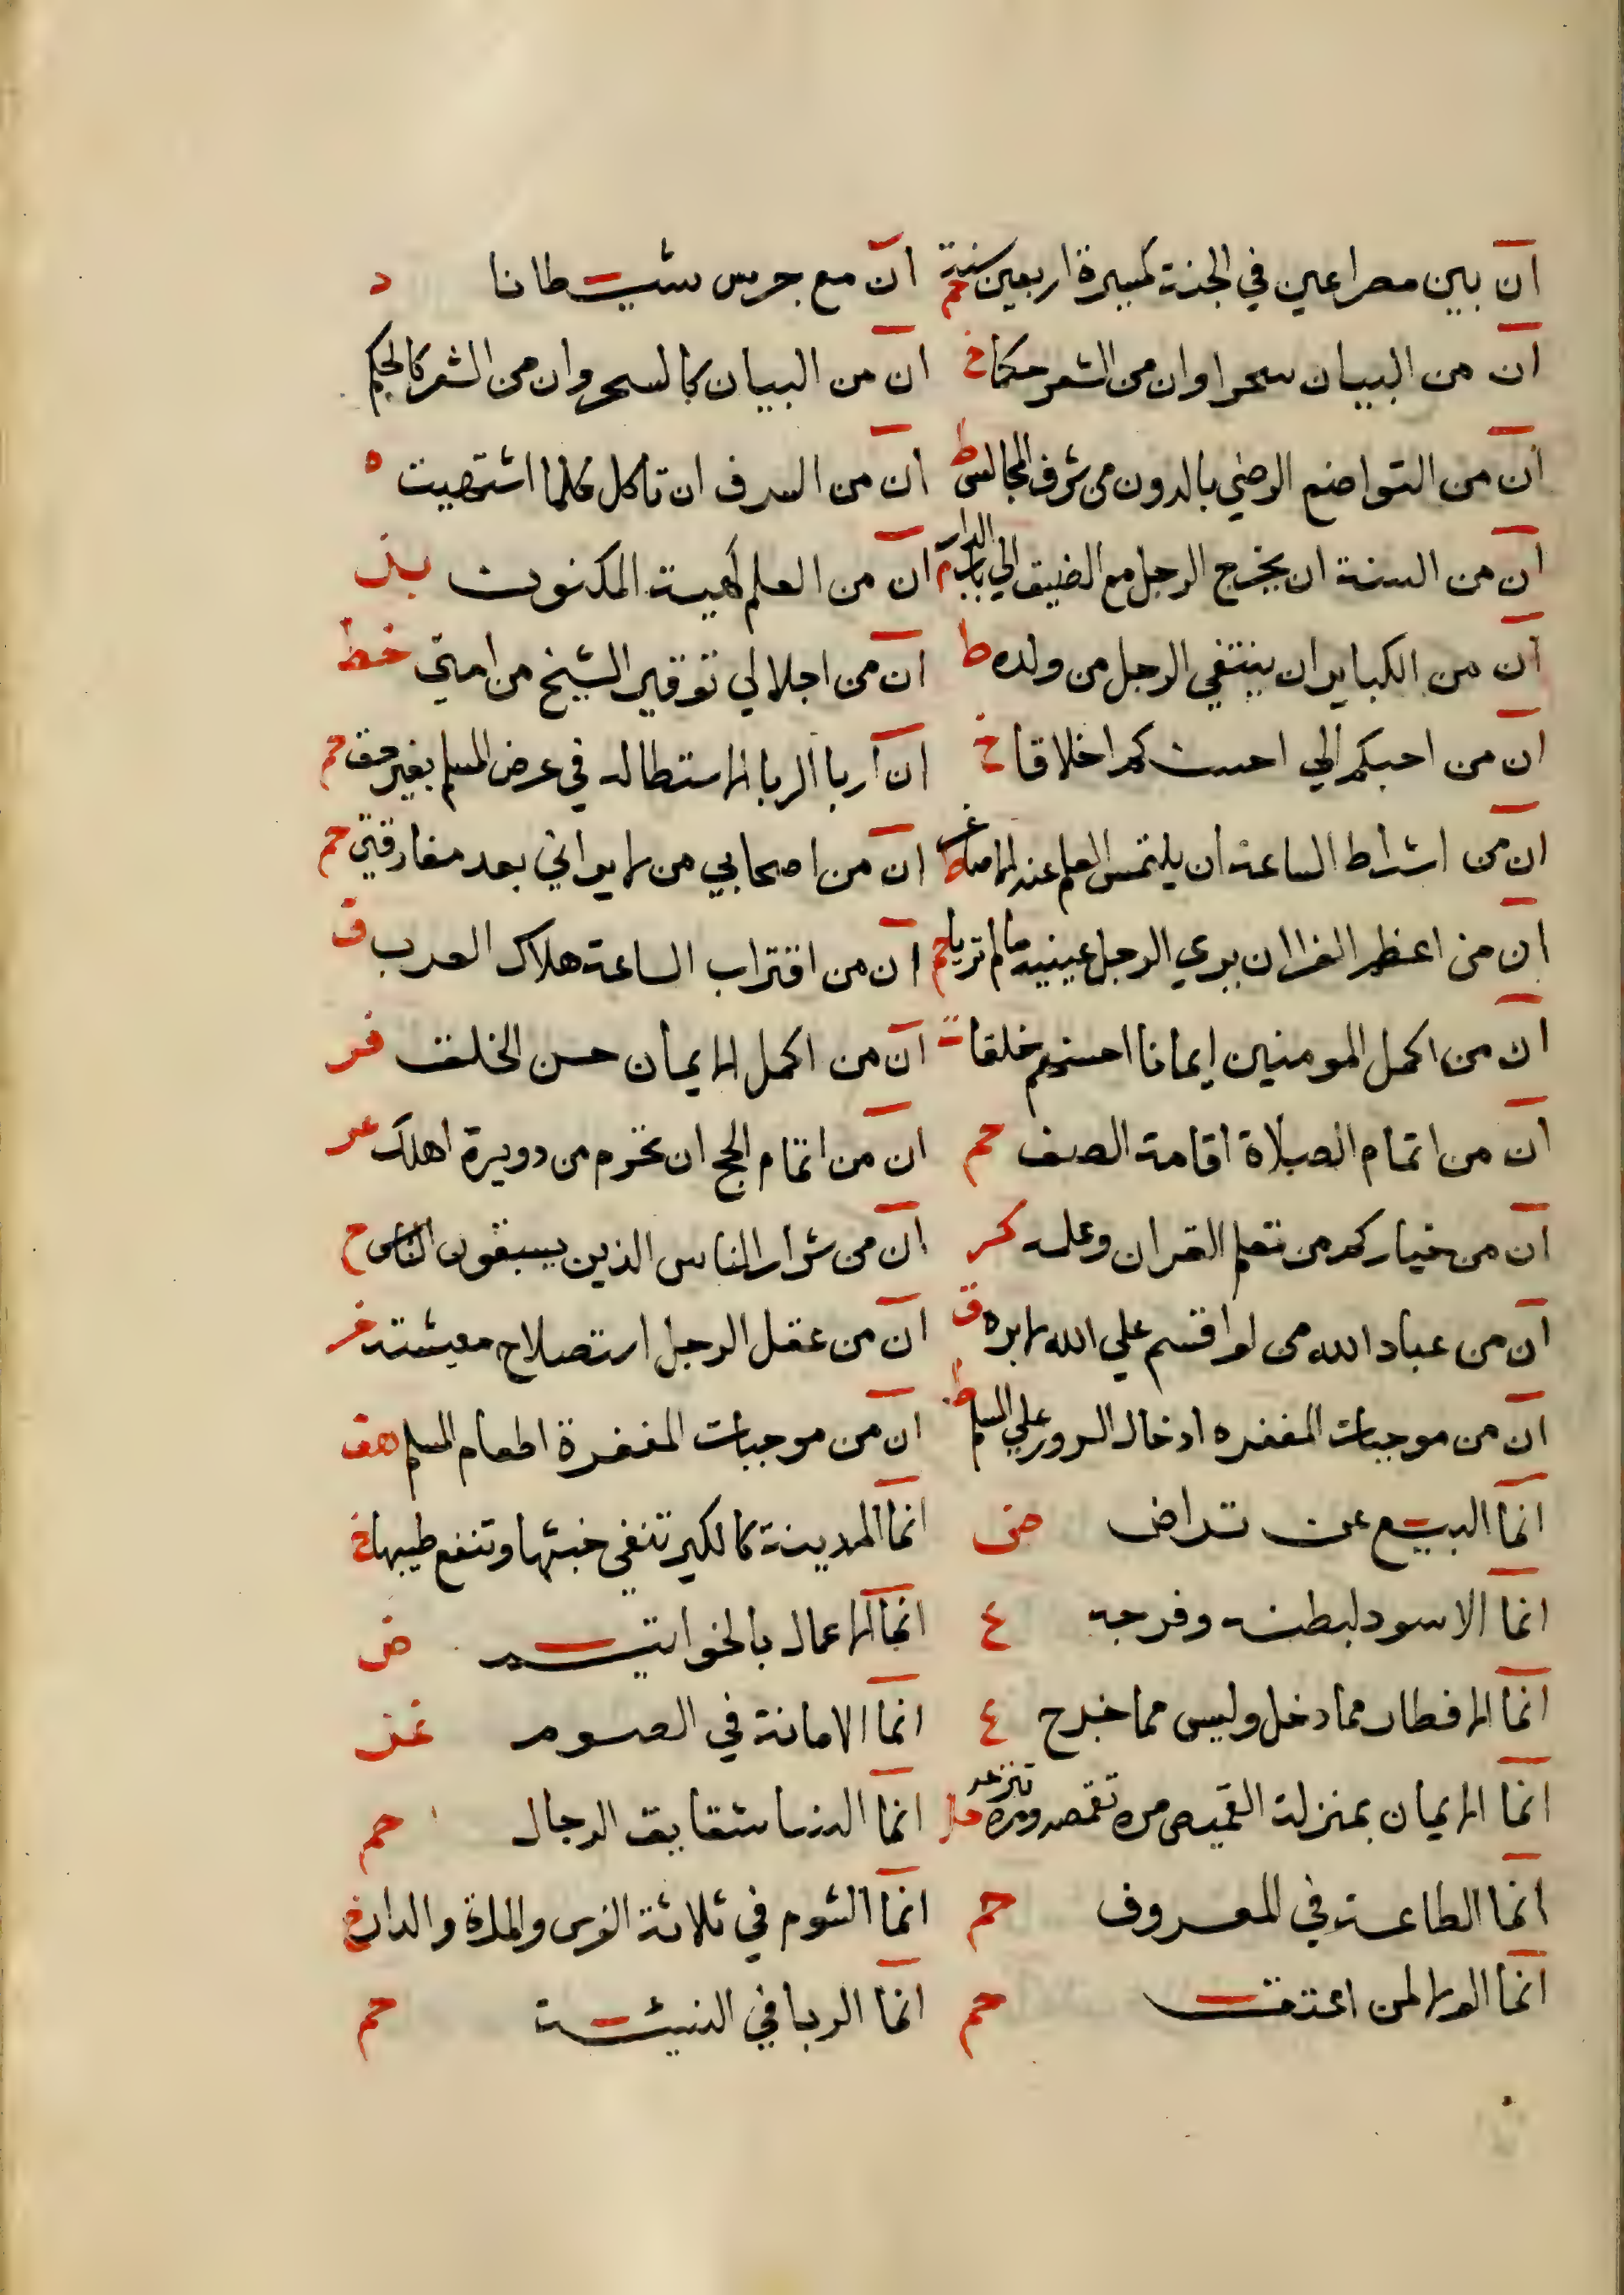 ان بين مصراعين في الجنة كمسيرة اربعين سنة حم ان مع جرس شيطانا د
ان من البيان سحرا وان من الشعر حكما خ ان من البيان كالسحر وان من الشعر كالحكم
ان من التواضع الرضي بالدون من شرف المجالس ط ان من السرف ان تاكل كلما اشتهيت ه
ان من السنة ان يخرج الرجل مع الضيف الي باب الدار ان من العلم كهيئة المكنون
ان من الكباير ان ينتفي الرجل من ولده ط ان من اجلالي توقير الشيخ من امتي خط
ان من احبكم الي احسنكم اخلاقا خ ان اربا الربا الاستطاله في عرض المسلم بغير حق حم
ان من اشراط الساعة ان يلتمس العلم عند الاصاغر ط ان من اصحابي من لا يراني بعد مفارقتي حم
ان من اعظم الفرا ان يري الرجل عينيه ما لم تريا حم ان من اقتراب الساعة هلاك العرب ق
ان من اكمل المومنين ايمانا احسنهم خلقا ت ان من اكمل الايمان حسن الخلق فر
ان من اتمام الصلاة اقامة الصف حم ان من اتمام الحج ان تحرم من دويرة اهلك عد
ان من خياركم من تعلم القران وعلمه كر ان من شرار الناس الذين يسبقون الناس ح
ان من عباد الله من لو اقسم علي الله لابره ق ان من عقل الرجل استصلاح معيشته
ان من موجبات المغفره ادخال السرور علي المسلم ط ان من موجبات المغفرة اطعام المسلم هق
انما البيع عن تراض ض انما المدينة كالكير تنفي خبثها وتنصع طيبها خ
انما الاسود لبطنه وفرجه ع انما الاعمال بالخواتيم ض
انما الافطار مما دخل وليس مما خرج ع انما الامانة في الصوم
انما الايمان بمنزلة القميص مره تقمصه ومره تنزعه انما النسا شقايق الرجال حم
انما الطاعة في المعروف حم انما الشوم في ثلاثة الفرس والمراة والدار خ
انما الولا لمن اعتق حم انما الربا في النسيئة حم